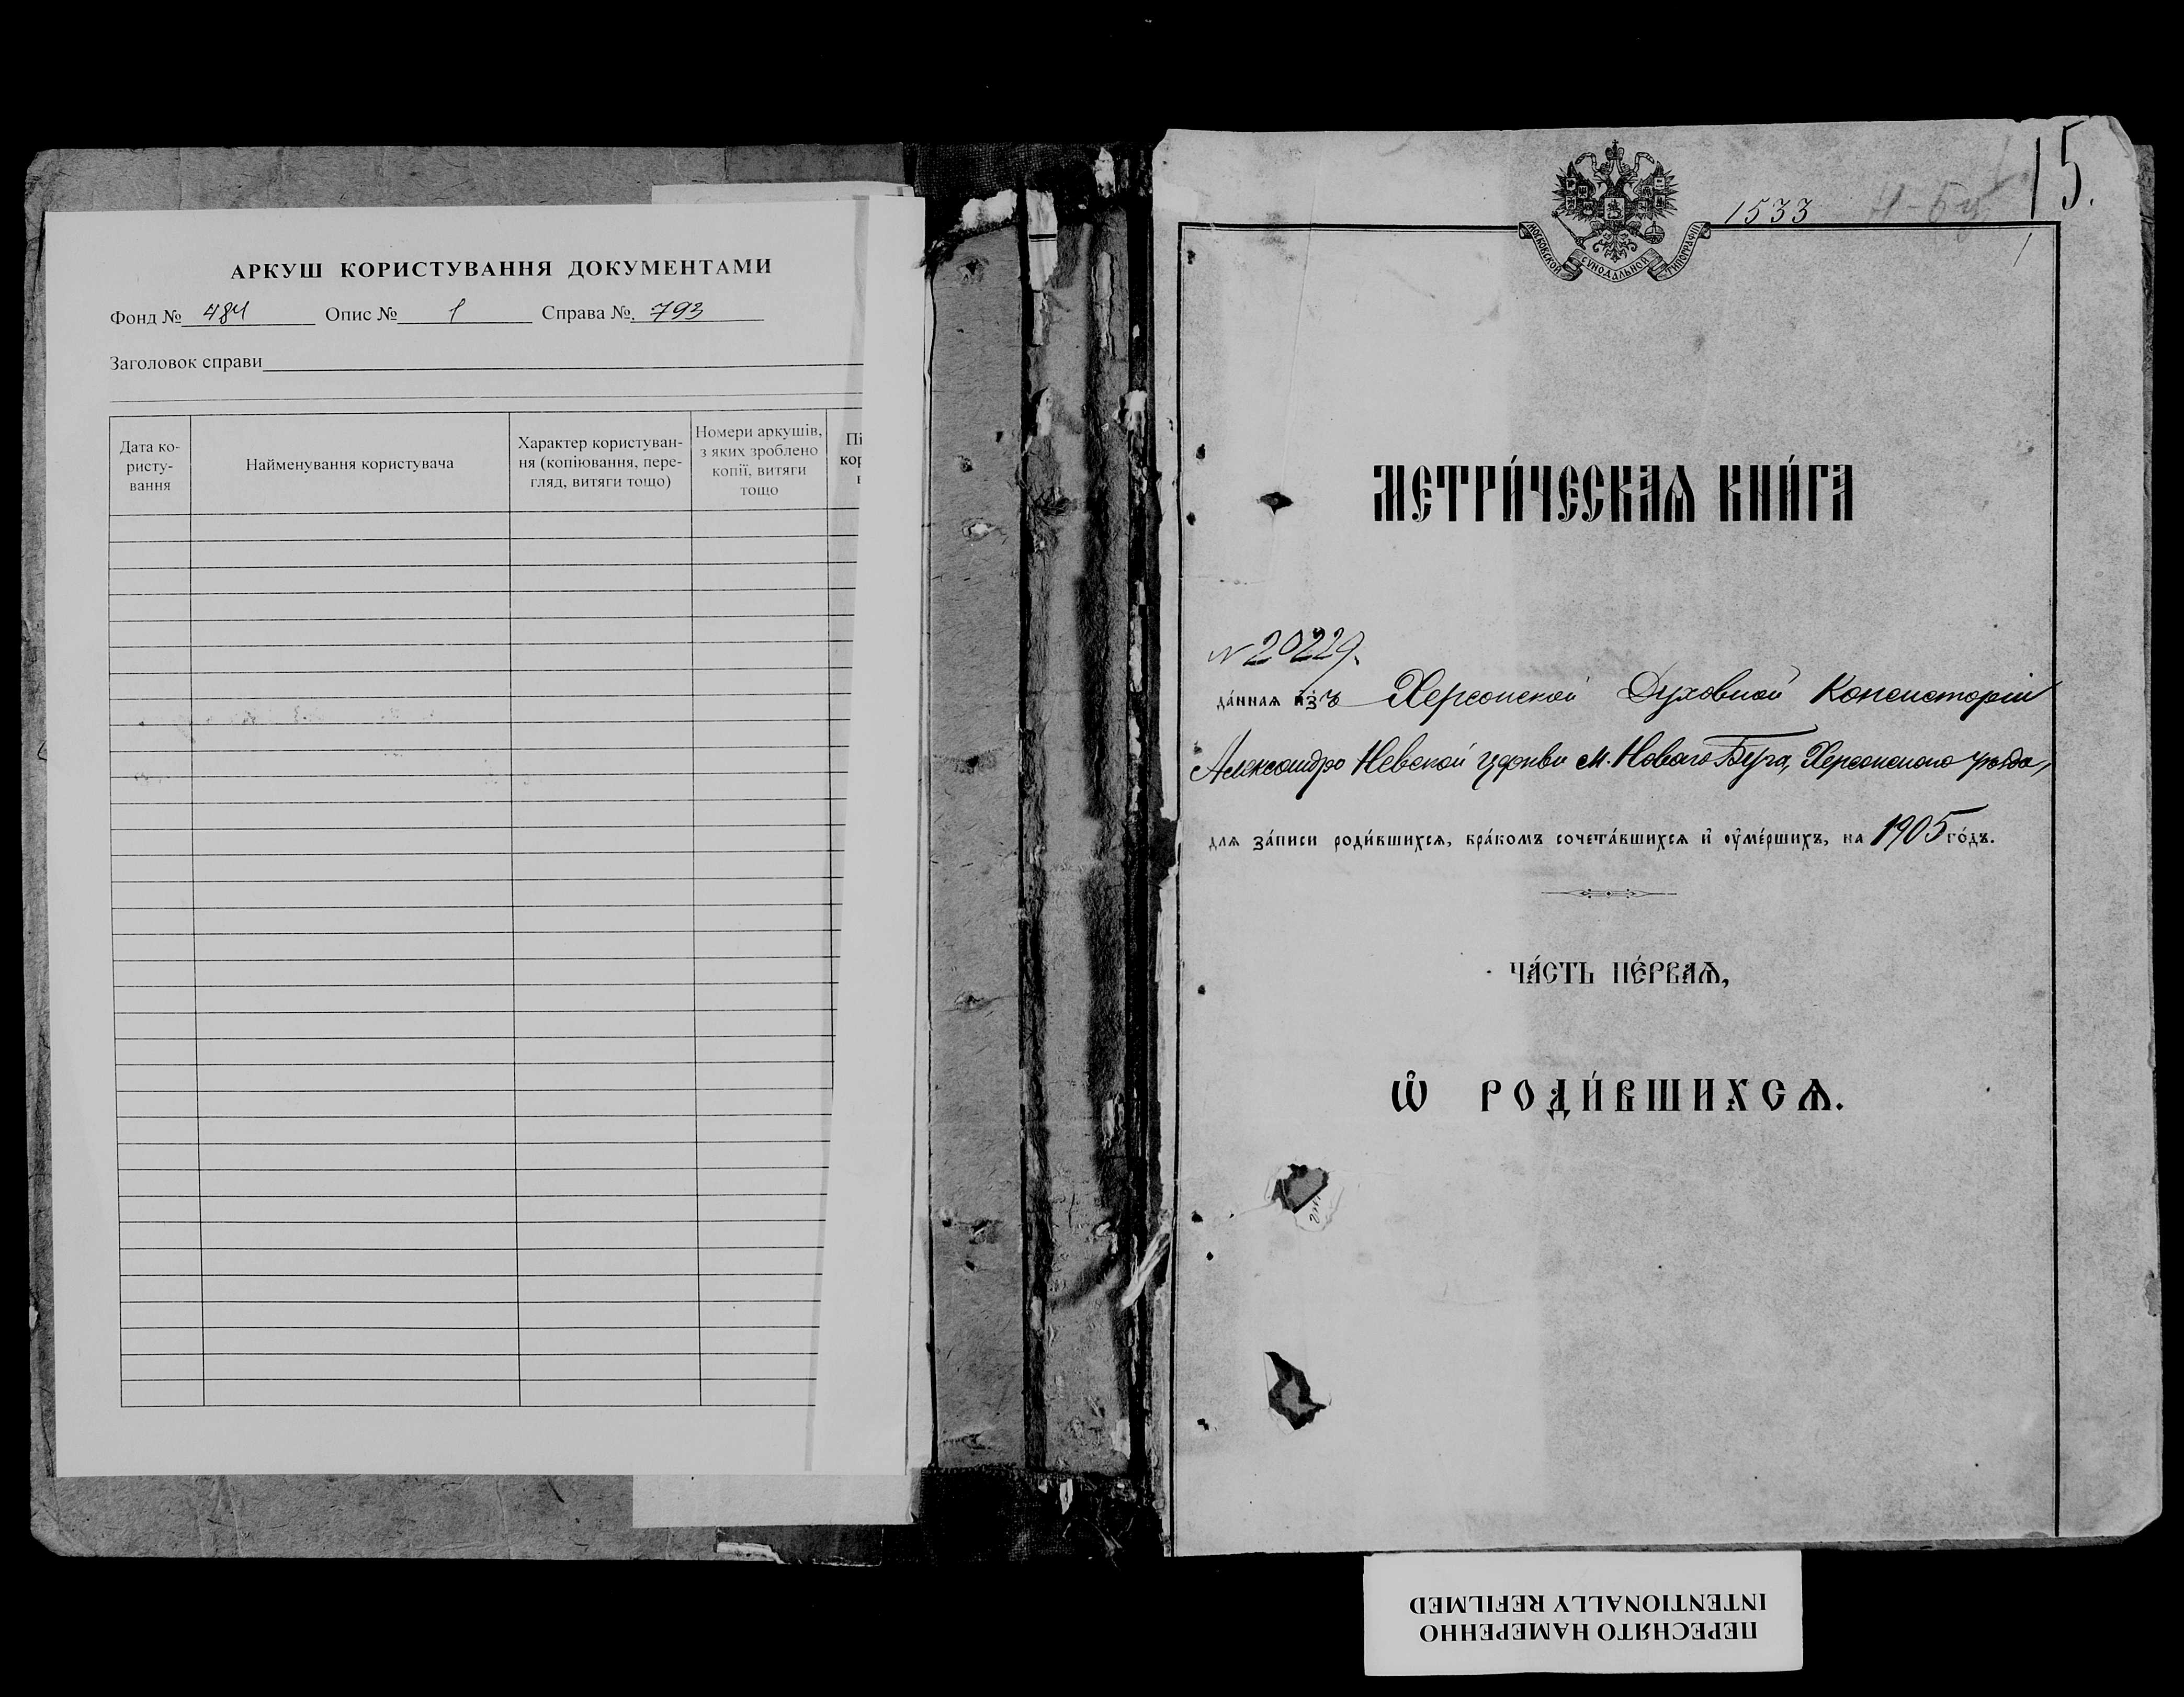 АРКУШ КОРИСТУВАННЯ ДОКУМЕНТАМИ
Фонд № 484 Опис № 1 Справа №. 793
Заголовок справи
Дата ко-
ристу-
вання
Найменування користувача
Характер користуван-
ня (копіювання, пере-
гляд, витяги тощо)
Номери аркушів,
з яких зроблено
копії, витяги
тощо
Пі
кор
15.
1533
МОСКОВСКОЙ СѴНОДАЛЬНОЙ ТИПОГРАФІИ
МЕТРИ́ЧЕСКАѦ КНИ́ГА
№ 20229.
да́ннаѧ изъ Херсонской Духовной Консисторіи
Александро Невской церкви м. Новаго Буга, Херсонскаго уѣзда,
для за́писи роди́вшихсѧ, бра́комъ сочета́вшихсѧ и҆ ᲂу҆ме́ршихъ, на 1905 го́дъ.
ЧА́СТЬ ПЕ́РВАѦ,
Ѽ РОДИ́ВШИХСѦ.
ПЕРЕСНЯТО НАМЕРЕННО
INTENTIONALLY REFILMED